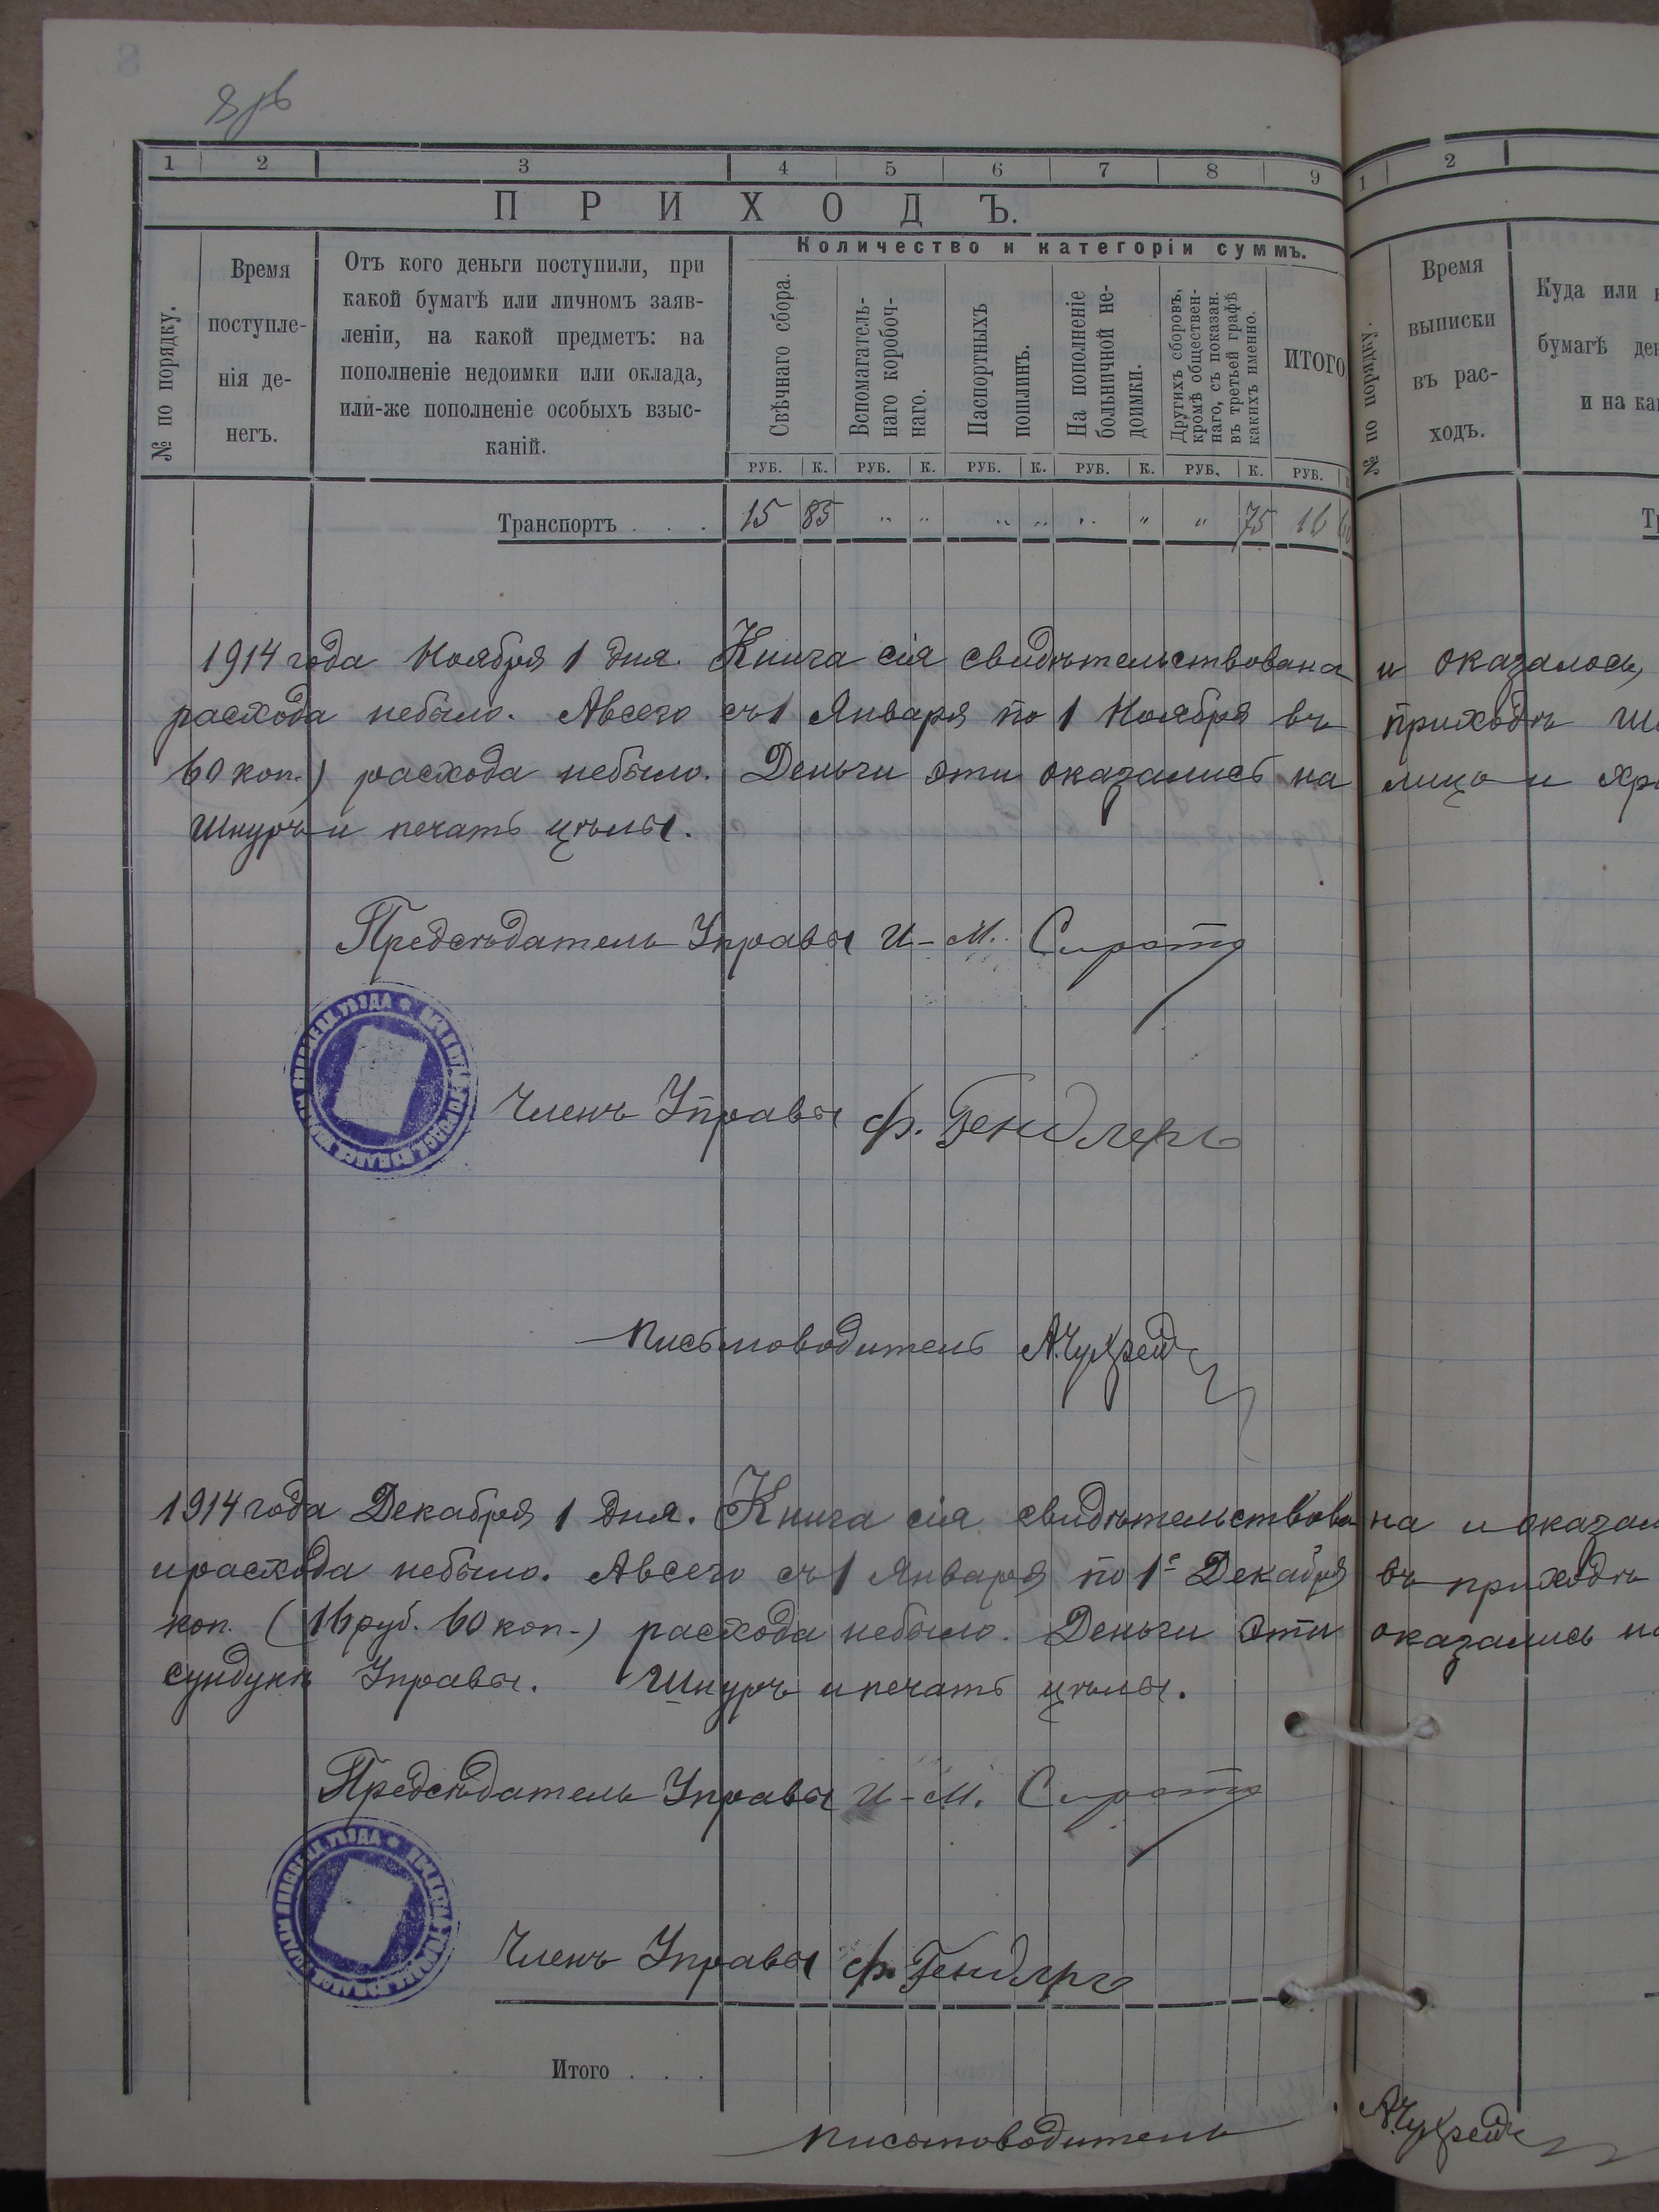 8 об
1 2 3 4 5 6 7 8 9
ПРИХОДЪ.
№ по порядку.
Время
поступле-
нія де-
негъ.
Отъ кого деньги поступили, при
какой бумагѣ или личномъ заяв-
леніи, на какой предметъ: на
пополненіе недоимки или оклада,
или-же пополненіе особыхъ взыс-
каній.
Количество и категоріи суммъ.
Свѣчнаго сбора.
Вспомагатель-
наго коробоч-
наго.
Паспортныхъ
пошлинъ.
На пополненіе
больничной не-
доимки.
Другихъ сборовъ,
кромѣ обществен-
наго, съ показан.
въ третьей графѣ
какихъ именно.
ИТОГО
РУБ. К. РУБ. К. РУБ. К. РУБ. К. РУБ. К. РУБ.
Транспортъ . . . 15 85 „ „ „ „ „ „ „ 75 16 60
1914 года Ноября 1 дня. Книга сія свидѣтельствована и оказалось,
расхода небыло. Авсего съ 1 Января по 1 Ноября въ приходѣ
60 коп.) расхода небыло. Деньги эти оказались на лицо и
Шнуръ и печать цѣлы.
Предсѣдатель Управы И-М. Сирота
Членъ Управы Ф. Гендлеръ
Письмоводитель
1914 года Декабря 1 дня. Книга сія свидѣтельствована и
и расхода небыло. Авсего съ 1 Января по 1е Декабря въ приходѣ
коп. (16 руб. 60 коп.) расхода небыло. Деньги эти оказались
сундукѣ Управы. Шнуръ и печать цѣлы.
Предсѣдатель Управы И-М. Сирота
Членъ Управы Ф. Гендлеръ
Итого . . .
Письмоводитель
1 2
№ по порядку.
Время
выписки
въ рас-
ходъ.
Куда или
бумагѣ
и на